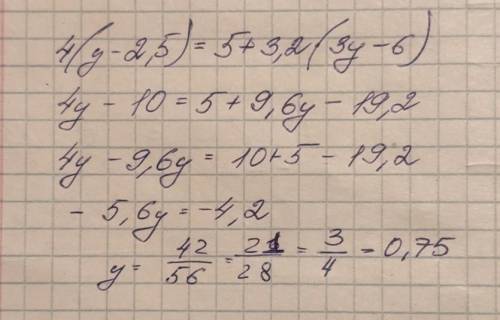 4(y-2,5)=5+3,2(3y-6)
4y-10=5+9,6y-19,2
4y-9,6y=10+5-19,2
-5,6y=-4,2
y=42/56=21/28=3/4=0,75